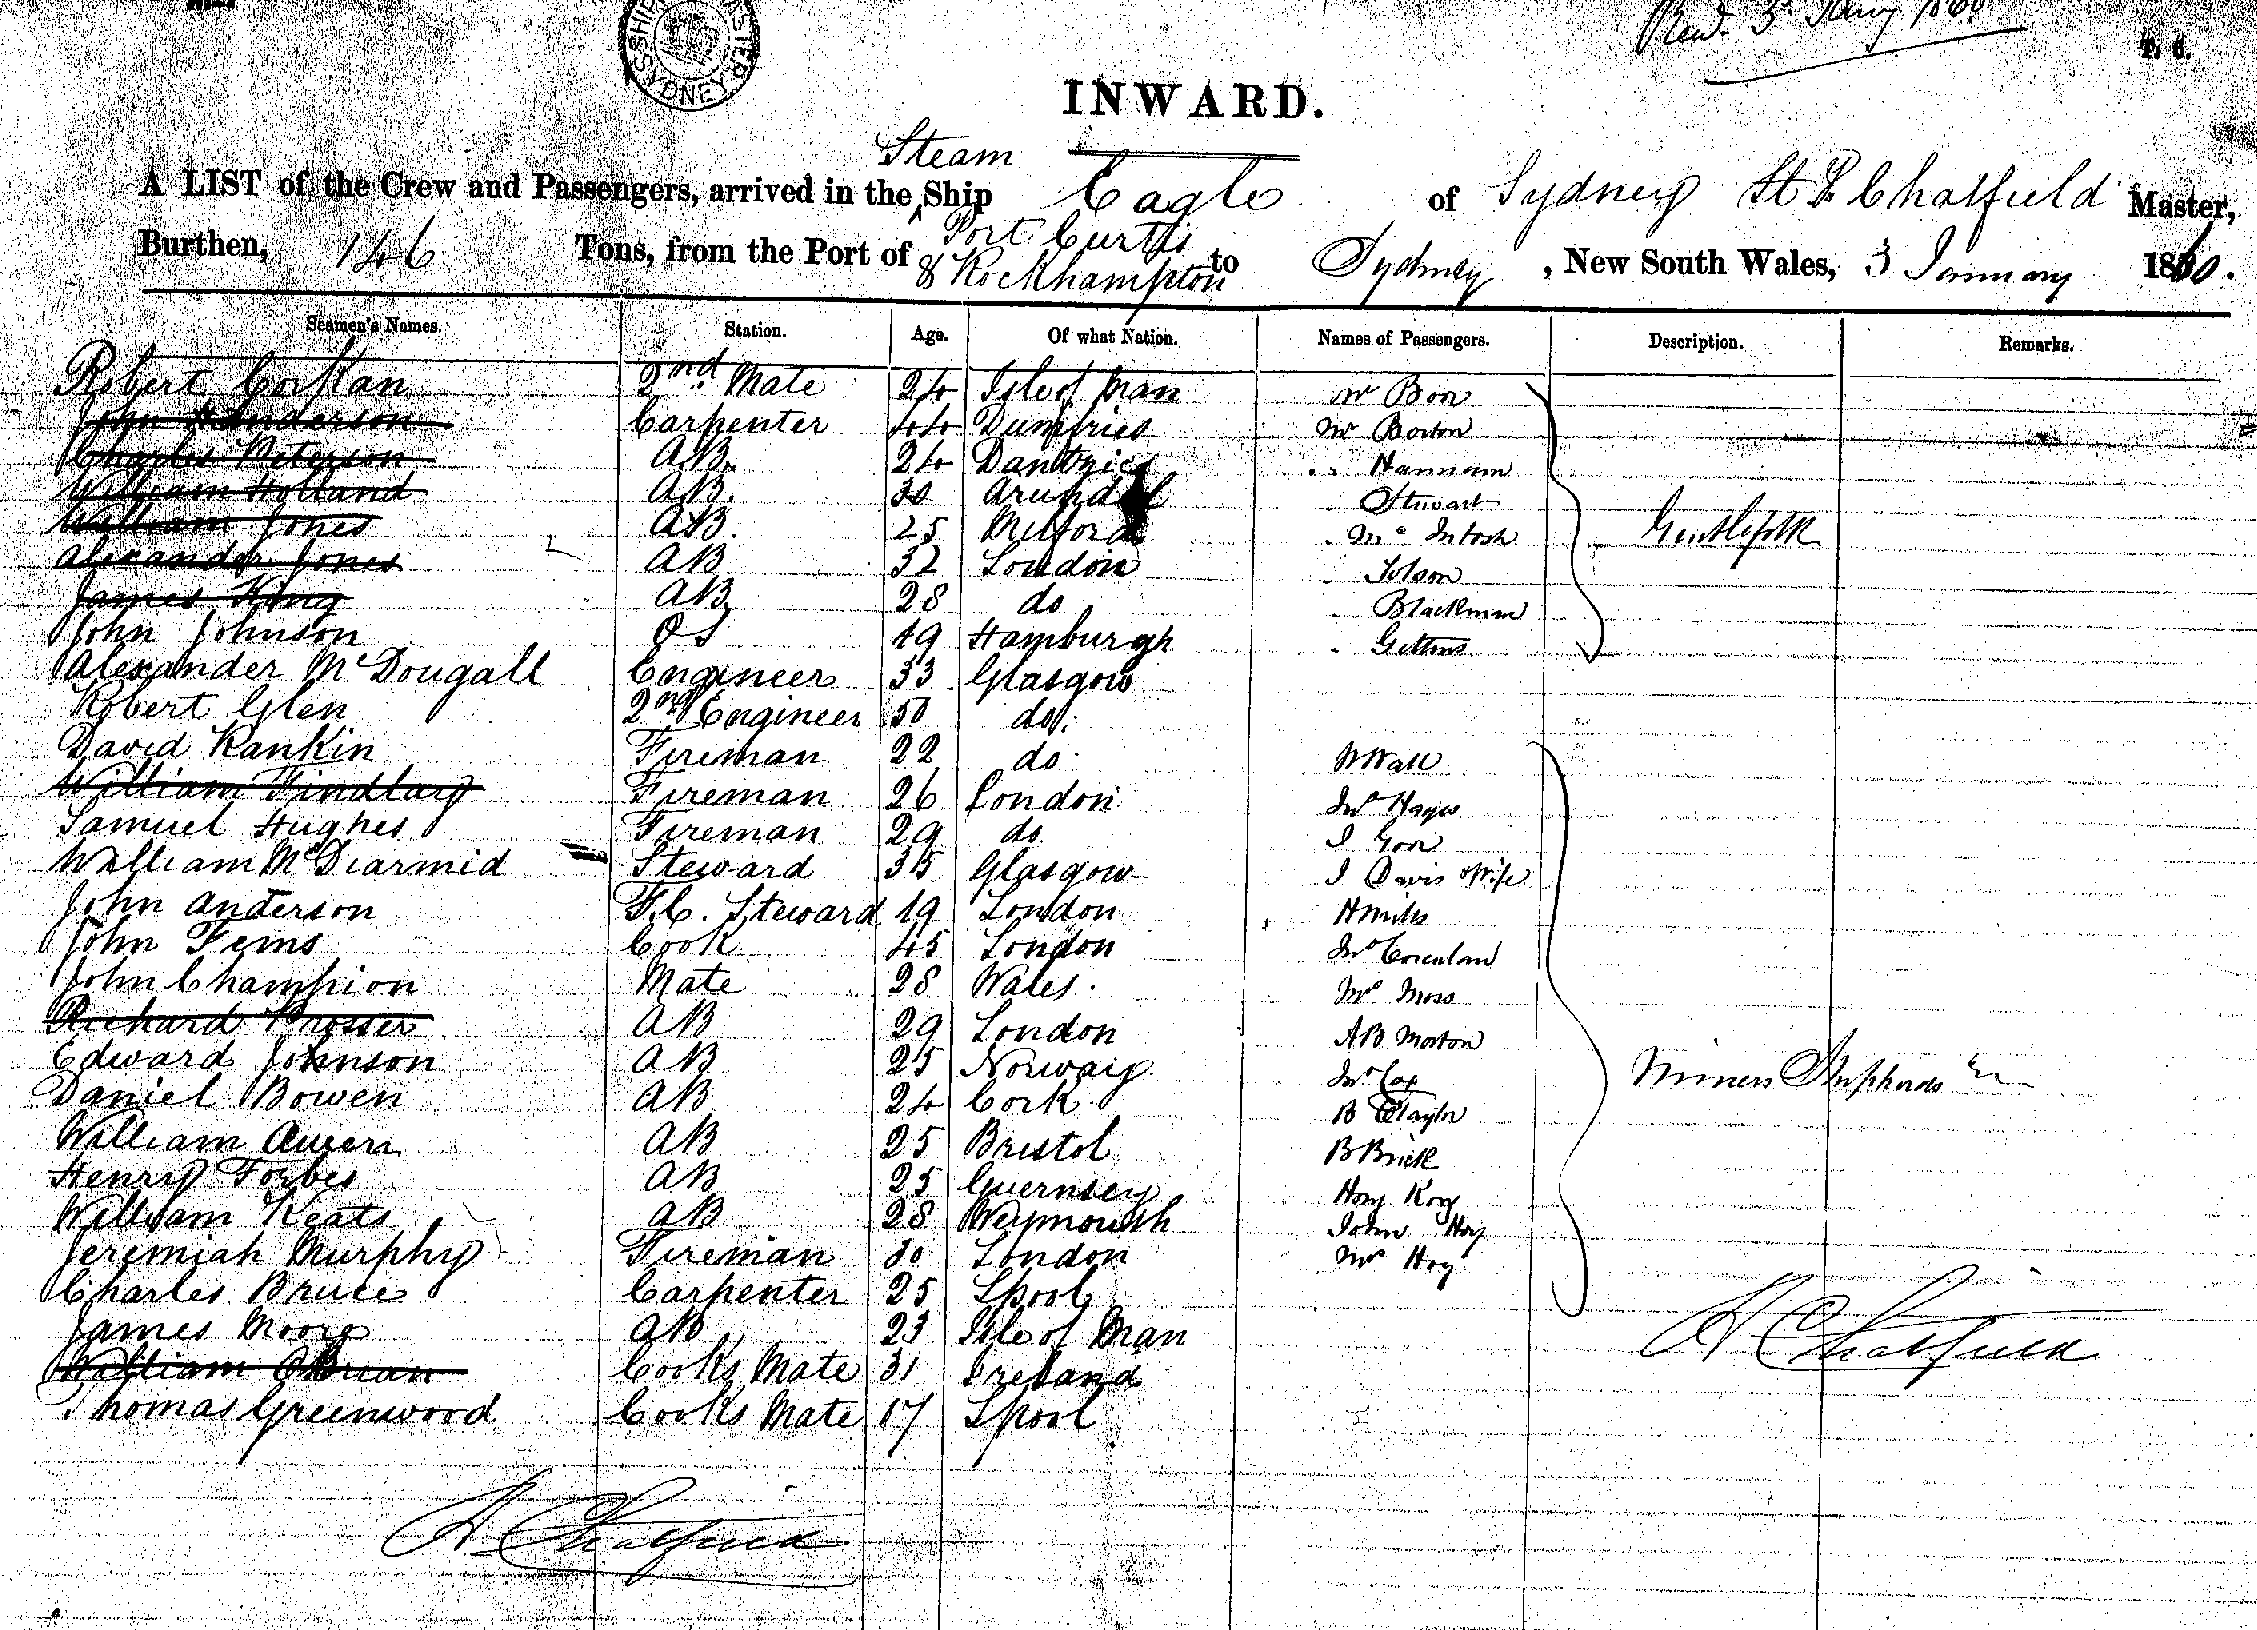 Recd. 3d Jany 1860
SHIP
SYDNEY
INWARD.
Steam
A LIST of the Crew and Passengers, arrived in the Ship Eagle of Sydney Chatfield Master,
Port Curtis
Burthen, 146 Tons, from the Port of & Rockhampton to Sydney, New South Wales, 3 January 1860.
Seamen's Names. Station. Age. Of what Nation. Names of Passengers. Description. Remarks.
Robert Corkan 2nd Mate 24 Isle of Man Mr Bon
John Henderson Carpenter 44 Dumfries Mr Borton
Charles Peterson AB. 24 Dantzic Hannam
William Holland AB. 30 Arundel Stewart
William Jones AB. 25 Milford McIntosh Gentlefolk
Alexander Jones AB 32 London Tolson
James King AB 28 do Blackman
John Johnson OS 19 Hamburgh Gittins
Alexander McDougall Engineer 33 Glasgow
Robert Glen 2nd Engineer 50 do.
David Rankin Fireman 22 do. W Wall
William Findlay Fireman 26 London Jno Hayes
Samuel Hughes Fireman 29 do. J
William McDiarmid Steward 35 Glasgow J Davis & Wife
John Anderson F.C. Steward 19 London H Mills
John Fems Cook 45 London Jno
John Champion Mate 28 Wales. Mrs Moss
Richard Prosser AB 29 London AB Morton
Edward Johnson AB 25 Norway Jno Cox Miners Shepherds &c
Daniel Bowen AB 24 Cork B Taylor
William Auern AB 25 Bristol B Brick
Henry Forbes AB 25 Guernsey Hoy
William Keats AB 28 Weymouth John Hoy
Jeremiah Murphy Fireman 30 London Mrs Hoy
Charles Bruce Carpenter 25 Lpool
James Moore AB 23 Isle of Man
A Chatfield
William OBrian Cooks Mate 31 Ireland
Thomas Greenwood Cooks Mate 17 Lpool
A Chatfield